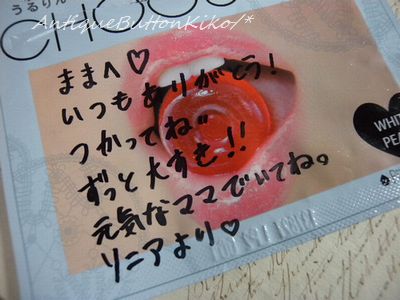 AntiqueButtonKiko/*
うるりん
CHOO
ままへ♡
いつもありがとう!
つかってね
ずっと大すき!!
元気なママでいてね。
リニアより♡
WHIT
PEA